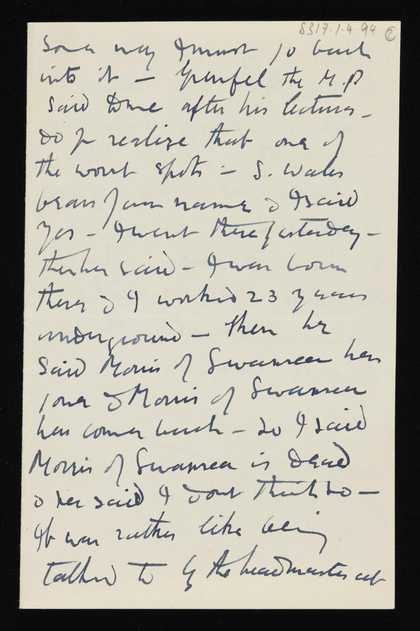 8317.1.4 94
some way I must go back
into it — Grenfel the M.P
said to me after his lectures —
do yr realize that one of
the worst spots in S. Wales
bears your name & I said
yes — I went there yesterday —
then he said — I was born
there & I worked 23 years
underground — then he
said Morris of Swansea has
gone & Morris of Swansea
has come back — so I said
Morris of Swansea is dead
& he said I dont think so —
It was rather like being
talked to by the headmaster at